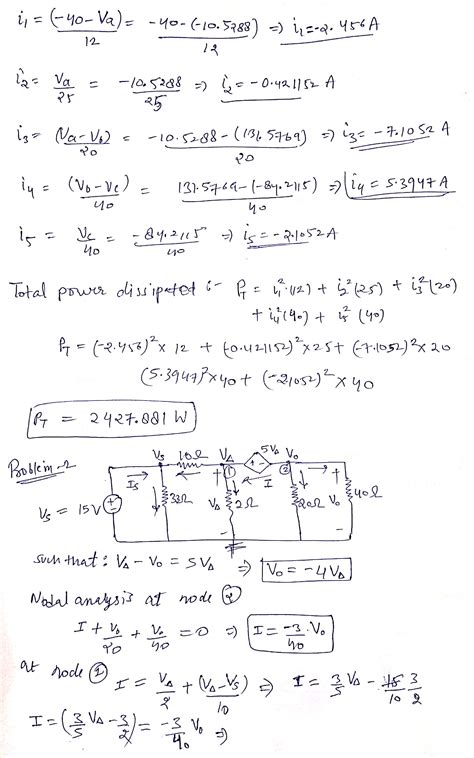 i₁ = (-40-Va)/12 = -40-(-10.5288)/12 ⇒ i₁=-2.456A
i₂ = Va/25 = -10.5288/25 ⇒ i₂ = -0.421152 A
i₃ = (Va-Vb)/20 = -10.5288-(131.5769)/20 ⇒ i₃ = -7.1052 A
i₄ = (Vb-Vc)/40 = 131.5769-(-84.2115)/40 ⇒ i₄ = 5.3947A
i₅ = Vc/40 = -84.2115/40 ⇒ i₅ = -2.1052A
Total power dissipated :- P_T = i₁²(12) + i₂²(25) + i₃²(20)
+ i₄²(40) + i₅²(40)
P_T = (-2.456)²×12 + (-0.421152)²×25 + (-7.1052)²×20
(5.3947)²×40 + (-2.1052)²×40
P_T = 2427.881 W
Problem-2
Vs 10Ω VΔ 5VΔ Vo
Is + ① + - ② I +
Vs = 15V + - 33Ω VΔ 2Ω 20Ω Vo 40Ω
- -
such that: VΔ - Vo = 5VΔ ⇒ Vo = -4VΔ
Nodal analysis at node ②
I + Vo/20 + Vo/40 = 0 ⇒ I = -3/40 . Vo
at node ① I = VΔ/2 + (VΔ-Vs)/10 ⇒ I = 3/5 VΔ - 15/10 3/2
I = (3/5 VΔ - 3/2) = -3/40 Vo ⇒